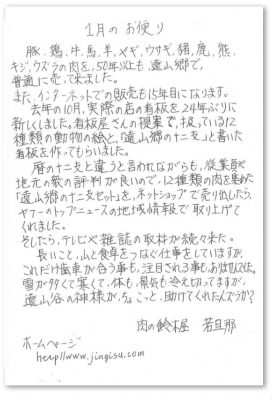 1月のお便り
豚、鶏、牛、馬、羊、ヤギ、ウサギ、猪、鹿、熊、
キジ、ウズラの肉を、50年以上も、遠山郷で、
普通に売って来ました。
また、インターネットでの販売も15年目になります。
去年の10月、実際の店の看板を24年ぶりに
新しくしました。看板屋さんの提案で、扱っている12
種類の動物の絵と、「遠山郷の十二支」と書いた
看板を作ってもらいました。
暦の十二支と違うと言われながらも、従業員や
地元の衆の評判が良いので、12種類の肉を集めた
「遠山郷の十二支セット」を、ネットショップで売り出したら、
ヤフーのトップニュースの地域情報で取り上げて
くれました。
そしたら、テレビや雑誌の取材が続々来た。
長いこと、山と食卓をつなぐ仕事をしていますが、
これだけ歯車が合う事も、注目される事も、ありませんでした。
雪が少なくて寒くて、体も、景気も冷え切ってますが、
遠山谷の神様が、ちょこっと、助けてくれたんズラか?
肉の鈴木屋 若旦那
ホームページ
http://www.jingisu.com/